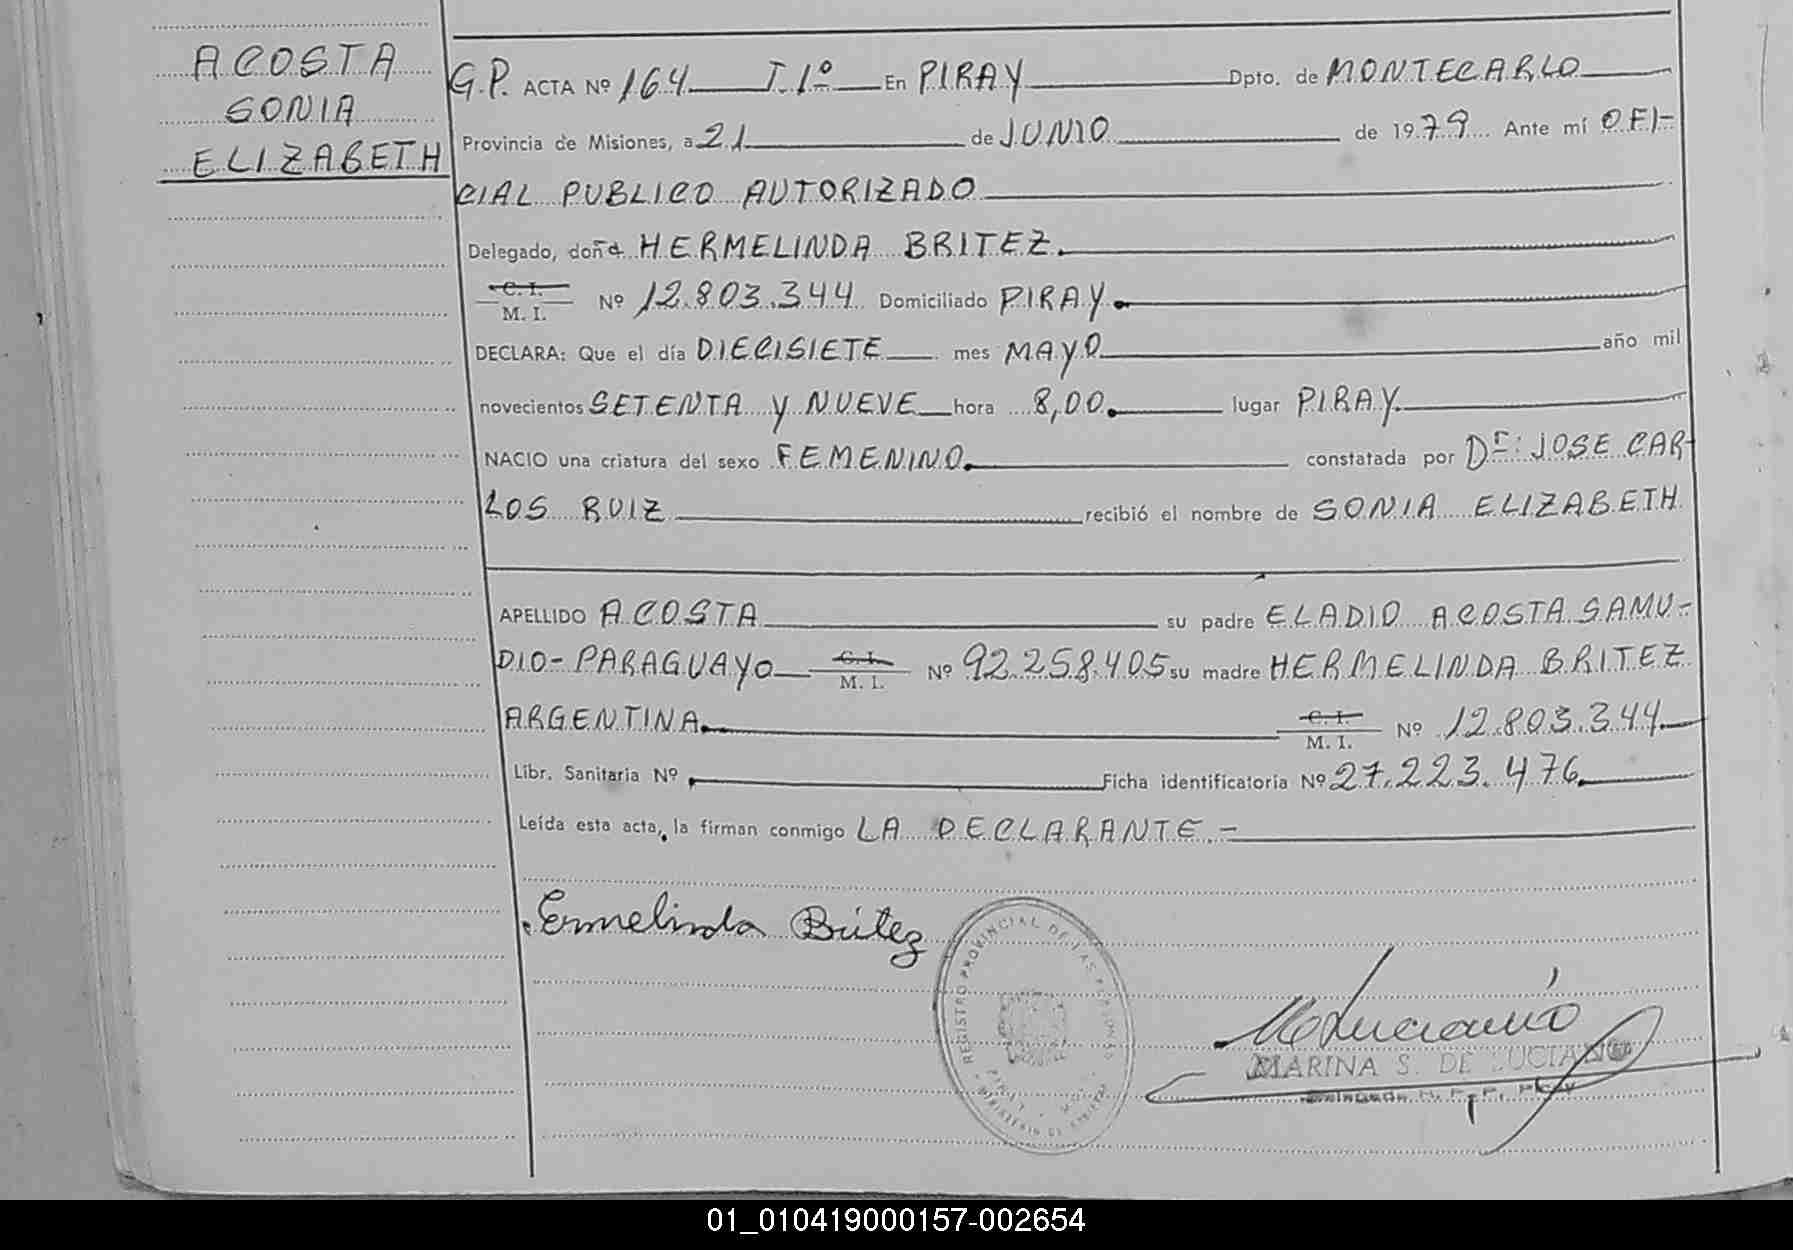 ACOSTA
SONIA
ELIZABETH
G.P. ACTA Nº 164 T.1º En PIRAY Dpto. de MONTECARLO
Provincia de Misiones, a 21 de JUNIO de 1979 Ante mí OFI-
CIAL PUBLICO AUTORIZADO
Delegado, doña HERMELINDA BRITEZ.
C. I.
M. I. Nº 12.803.344 Domiciliado PIRAY.
DECLARA: Que el día DIECISIETE mes MAYO año mil
novecientos SETENTA y NUEVE hora 8,00. lugar PIRAY.
NACIO una criatura del sexo FEMENINO. constatada por Dr: JOSE CAR-
LOS RUIZ recibió el nombre de SONIA ELIZABETH
APELLIDO ACOSTA su padre ELADIO ACOSTA SAMU-
DIO- PARAGUAYO C. I. M. I. Nº 92.258.405 su madre HERMELINDA BRITEZ
ARGENTINA. C. I. M. I. Nº 12.803.344
Libr. Sanitaria Nº Ficha identificatoria Nº 27.223.476.
Leída esta acta, la firman conmigo LA DECLARANTE.-
Ermelinda Britez
REGISTRO PROVINCIAL DE LAS PERSONAS
MARINA S. DE LUCIANO
01_010419000157-002654